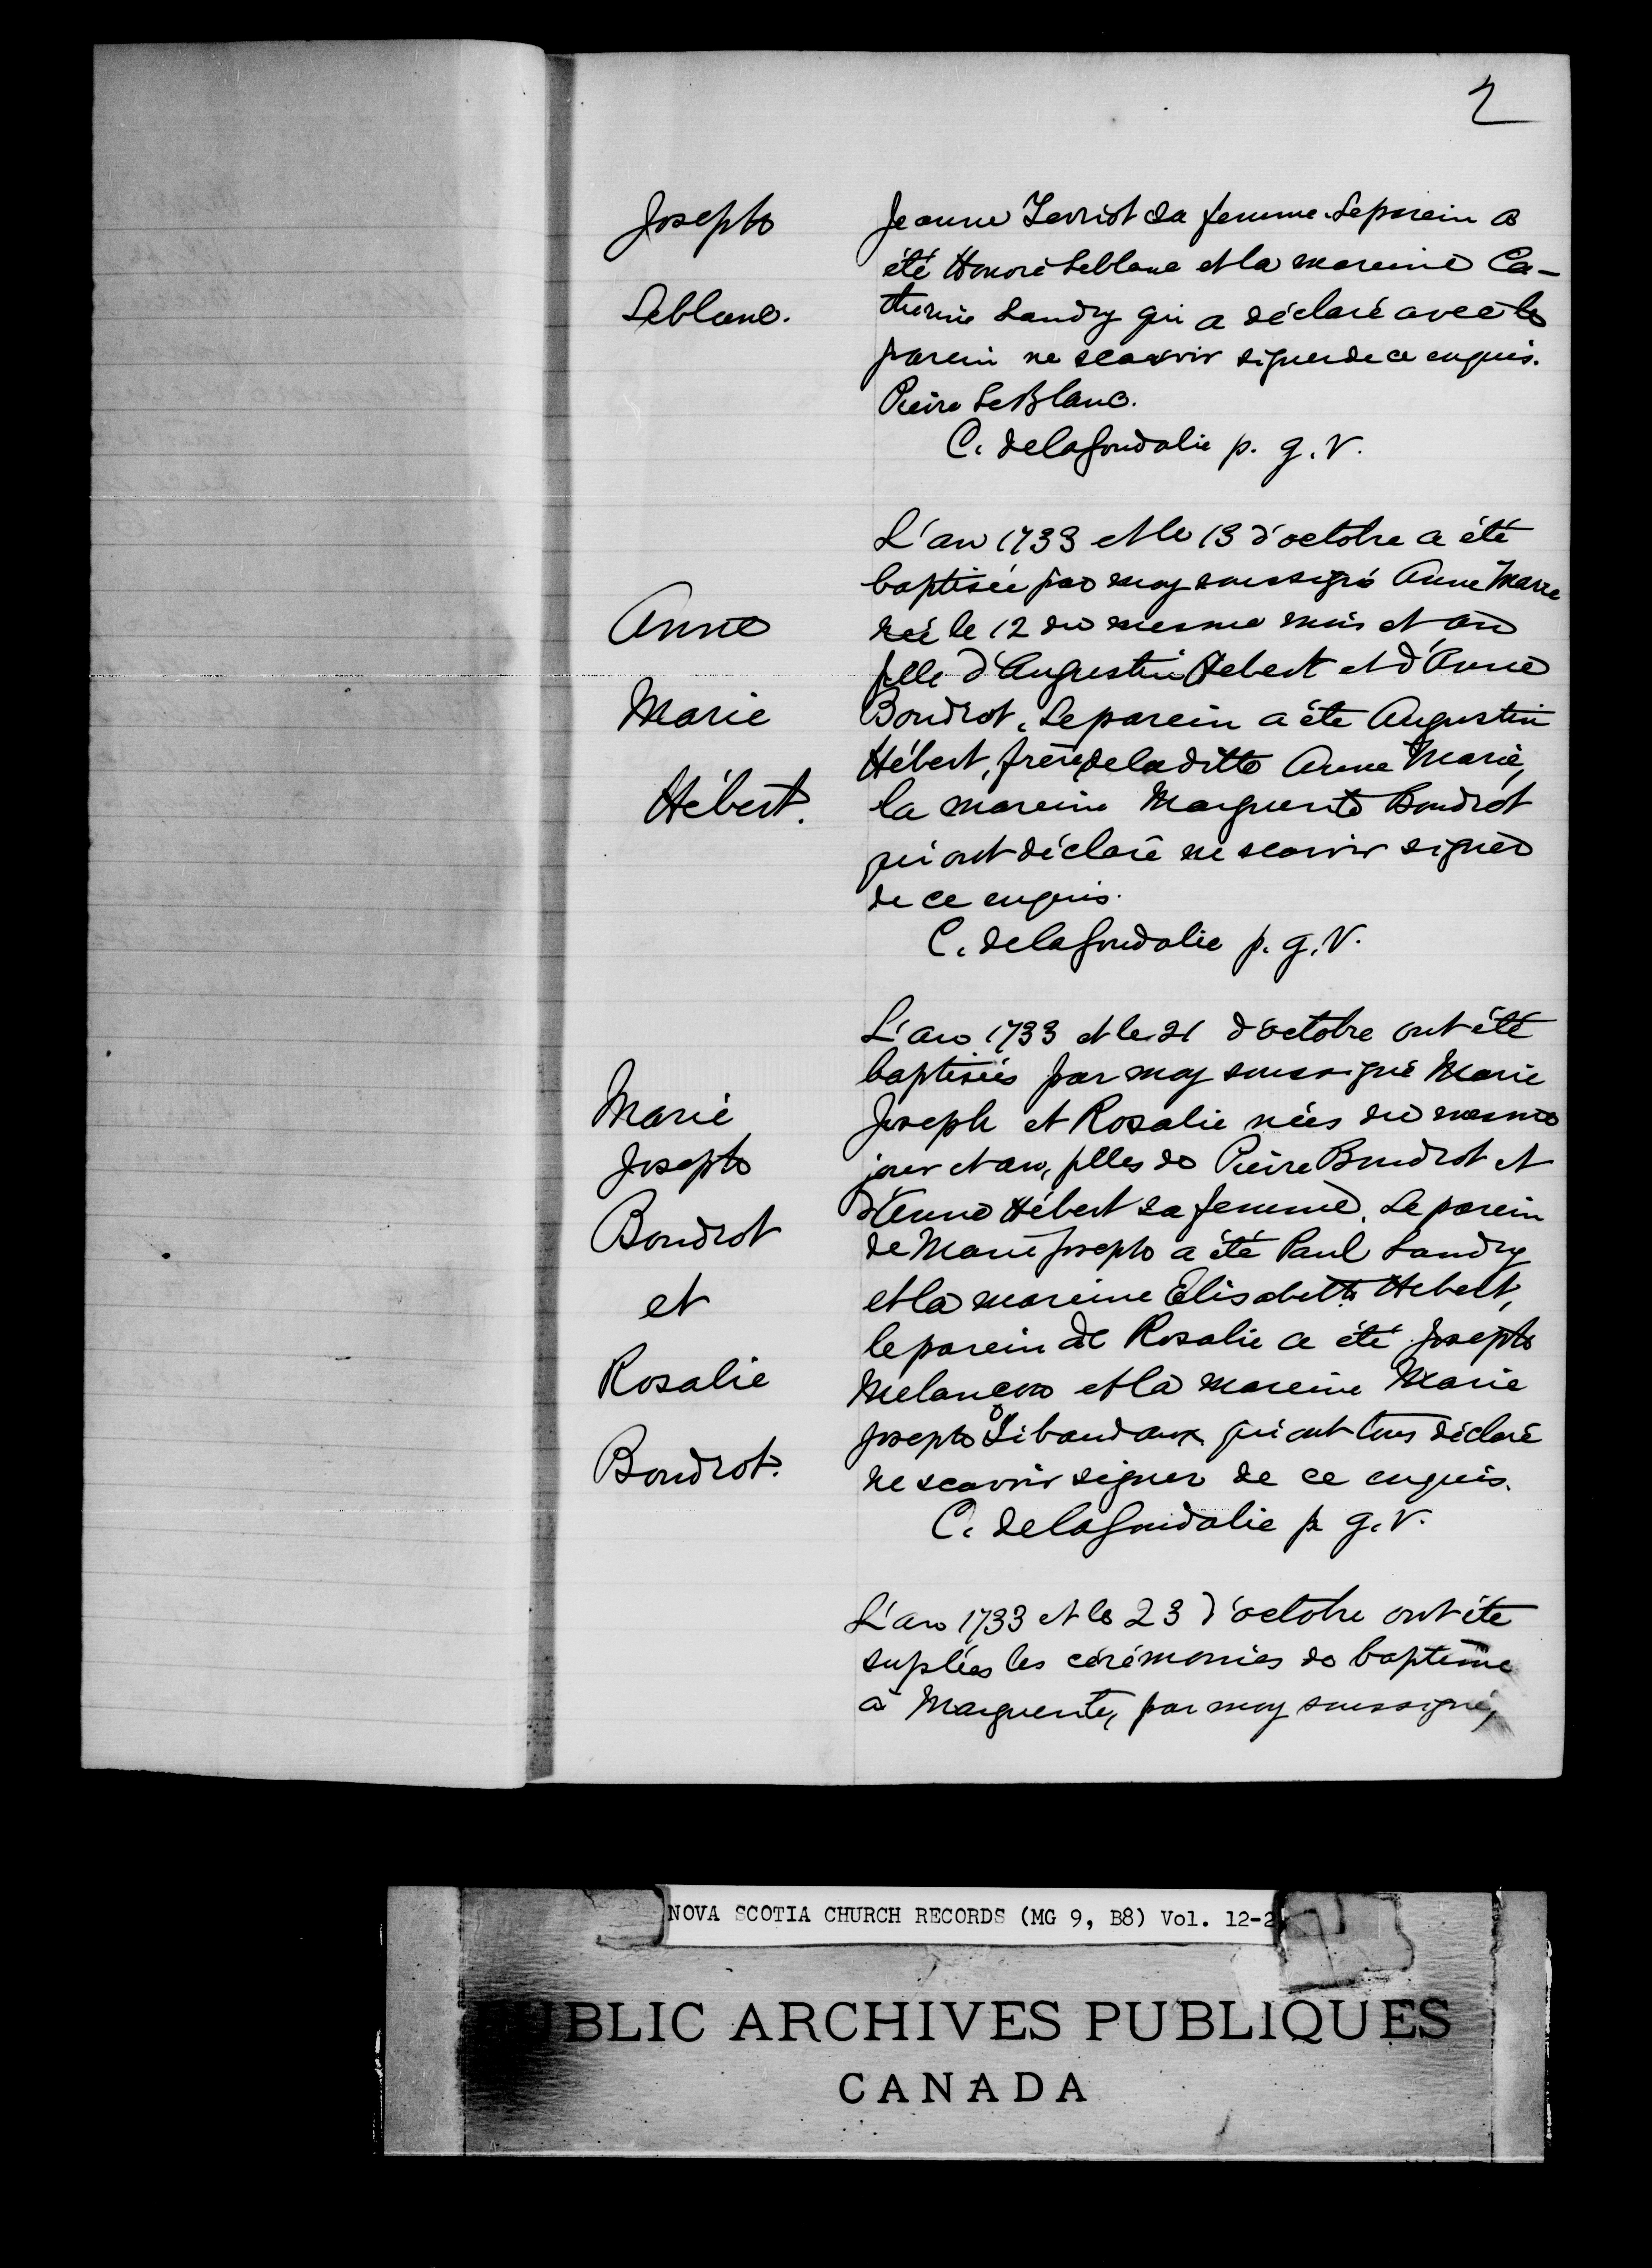 2
Joseph
Leblanc.
Jeanne Terriot sa femme. Le parein a
été Honoré Leblanc et la mareine Ca-
therine Landry qui a déclaré avec le
parein ne scavoir signer de ce enquis.
Pierre LeBlanc.
C. de la Goudalie p. g. V.
Anne
Marie
Hébert.
L'an 1733 et le 13 d'octobre a été
baptisée par moy soussigné Anne Marie
née le 12 du mesme mois et an
fille d'Augustin Hebert et d'Anne
Boudrot. Le parein a été Augustin
Hébert, frère de la ditte Anne Marie,
la mareine Marguerite Boudrot
qui ont déclaré ne scavoir signer
de ce enquis.
C. de la Goudalie p. g. V.
Marie
Joseph
Boudrot
et
Rosalie
Boudrot.
L'an 1733 et le 21 d'octobre ont été
baptisées par moy soussigné Marie
Joseph et Rosalie nées du mesme
jour et an, filles de Pierre Boudrot et
d'Anne Hébert sa femme. Le parein
de Marie Joseph a été Paul Landry
et la mareine Elisabeth Hebert,
le parein de Rosalie a été Joseph
Melançon et la mareine Marie
Joseph Tibaudaux qui ont tous déclaré
ne scavoir signer de ce enquis.
C. de la Goudalie p. g. V.
L'an 1733 et le 23 d'octobre ont été
suplées les cérémonies de baptême
à Marguerite, par moy soussigné,
NOVA SCOTIA CHURCH RECORDS (MG 9, B8) Vol. 12-2
PUBLIC ARCHIVES PUBLIQUES
CANADA